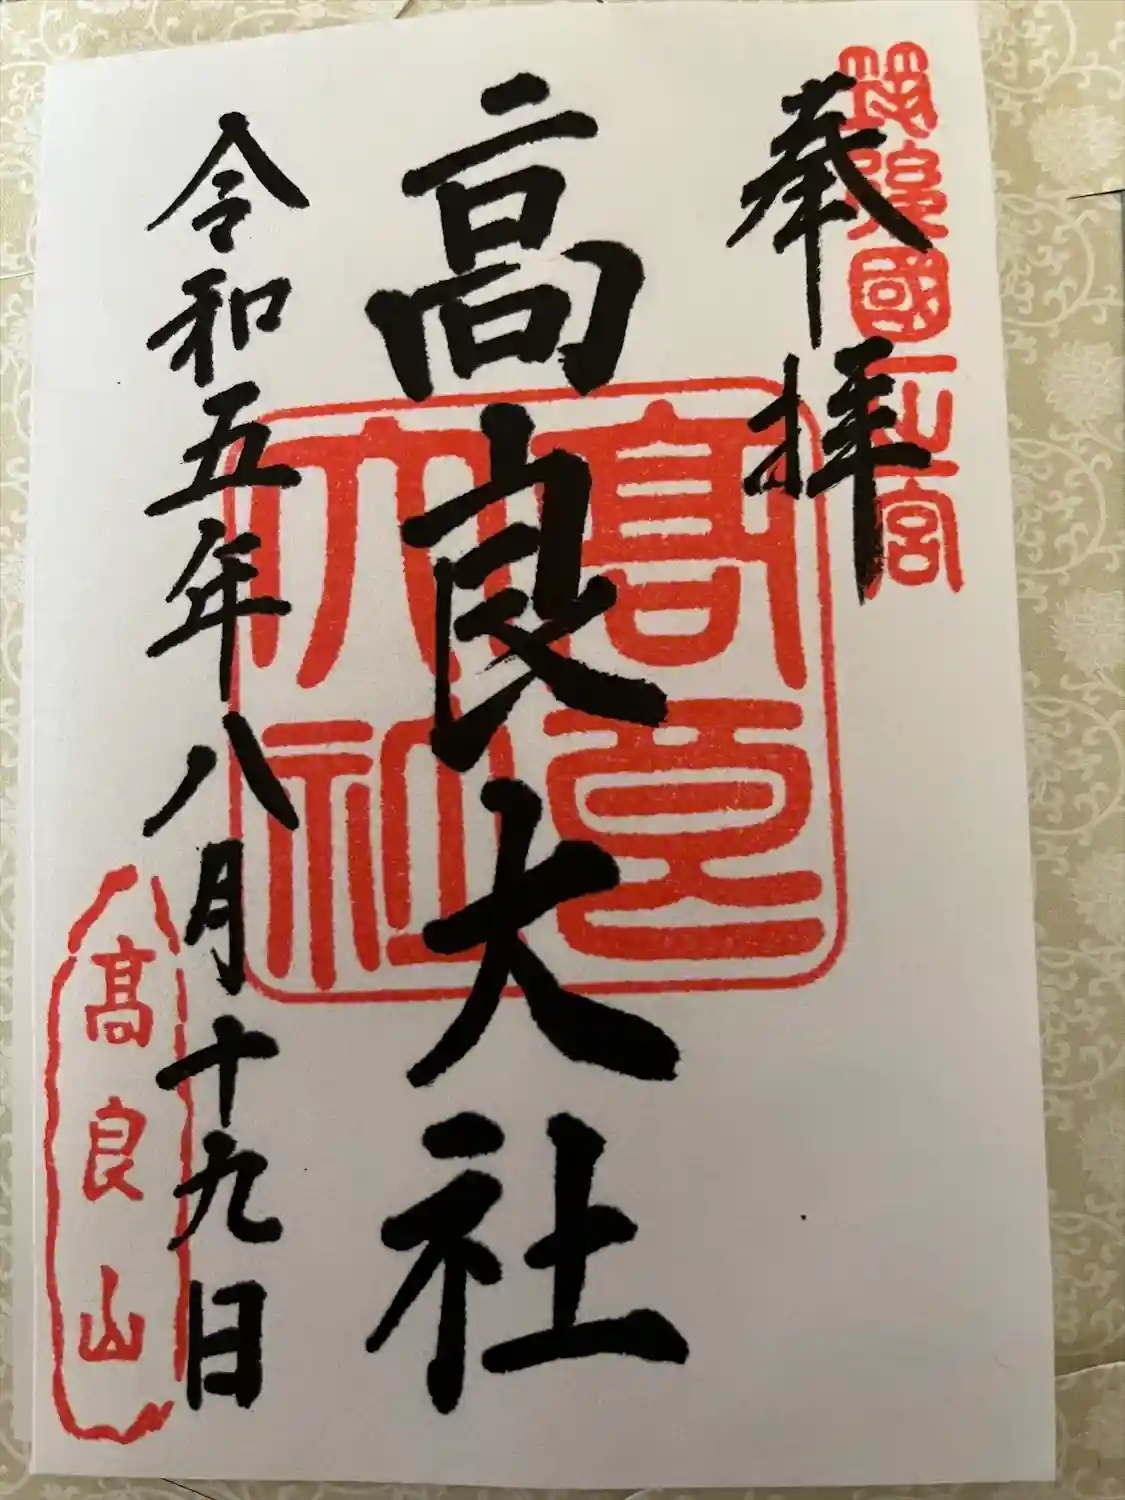 筑後國一之宮
奉拝
高良大社
髙良大社
令和五年八月十九日
髙良山